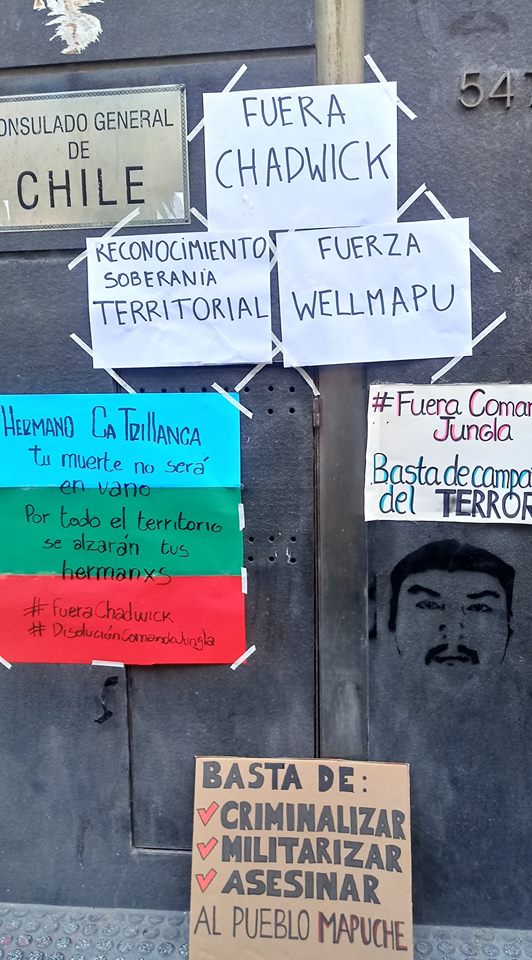 ONSULADO GENERAL
DE
CHILE
547
FUERA
CHADWICK
RECONOCIMIENTO
SOBERANÍA
TERRITORIAL
FUERZA
WELLMAPU
HERMANO CATRILLANCA
tu muerte no será
en vano
Por todo el territorio
se alzarán tus
hermanxs
#FueraChadwick
#DisoluciónComandoJungla
#Fuera Coman
Jungla
Basta de campa
del TERROR
BASTA DE:
✓CRIMINALIZAR
✓MILITARIZAR
✓ASESINAR
AL PUEBLO MAPUCHE